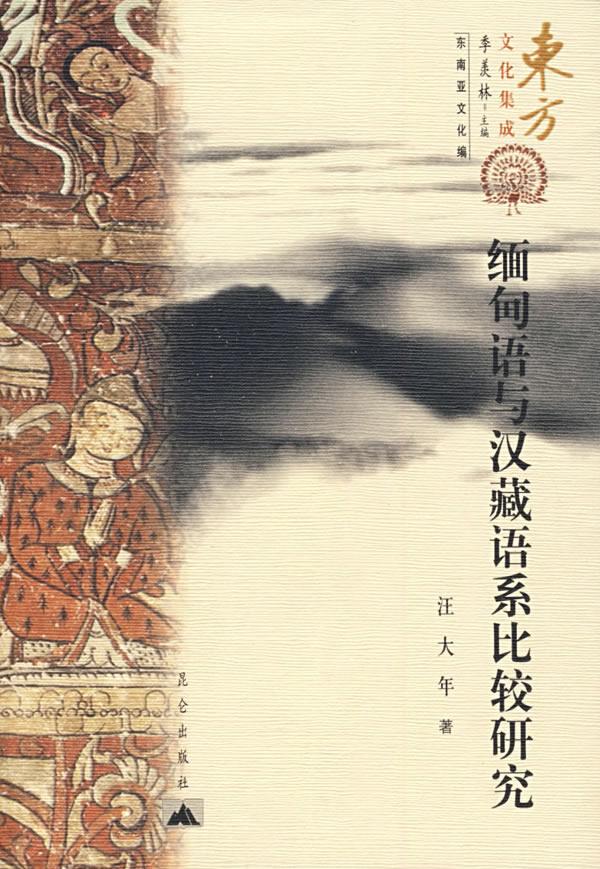 東方
文化集成
季羡林=主编
东南亚文化编
缅甸语与汉藏语系比较研究
汪大年 著
昆仑出版社